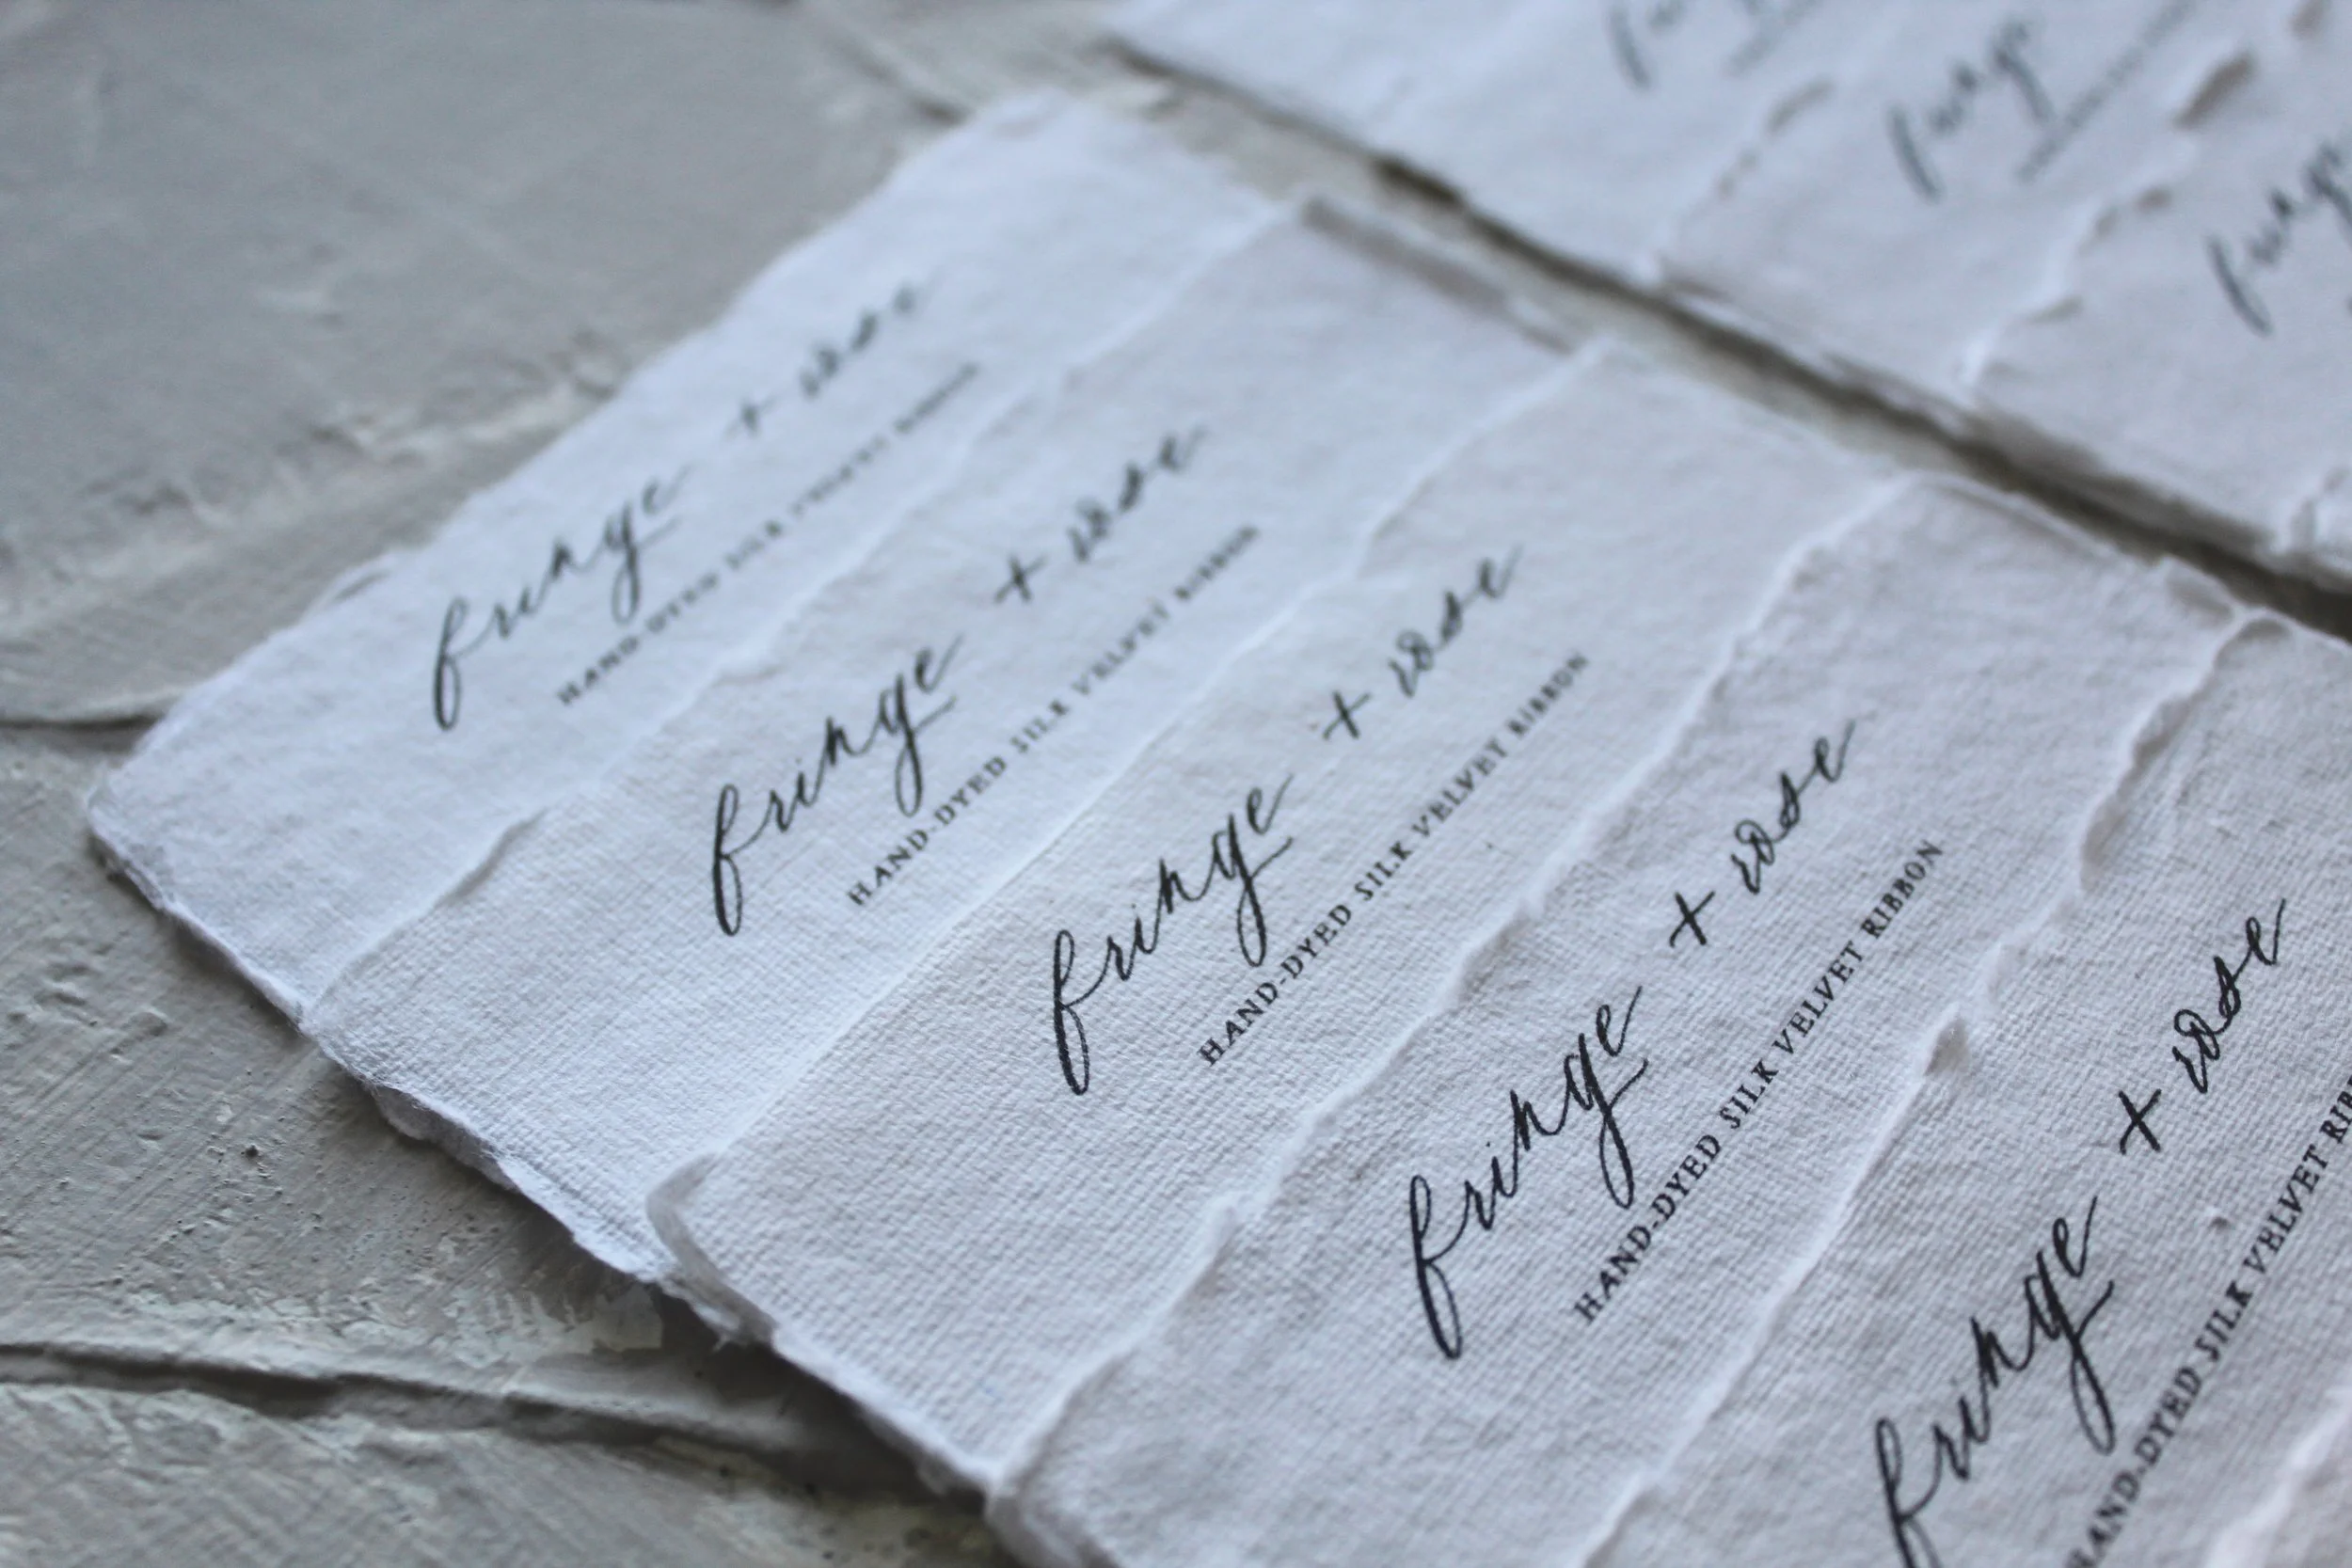 fringe + rose
HAND-DYED SILK VELVET RIBBON
fringe + rose
HAND-DYED SILK VELVET RIBBON
fringe + rose
HAND-DYED SILK VELVET RIBBON
fringe + rose
HAND-DYED SILK VELVET RIBBON
fringe + rose
HAND-DYED SILK VELVET
fringe
fringe